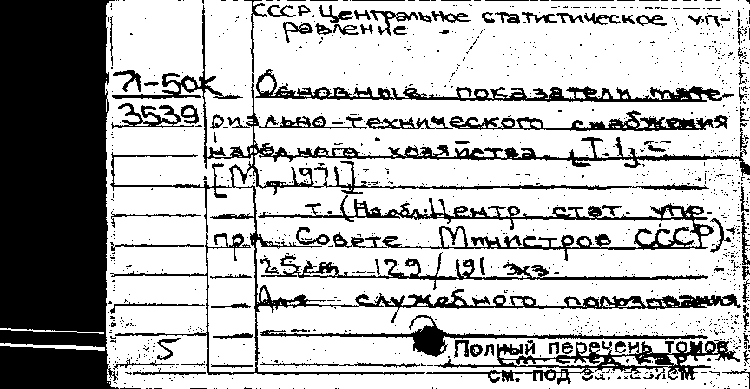 СССР. Центральное статистическое уп-
равление
71-50К Основные показатели мате-
3539 риально-технического снабжения
народного хозяйства. [Т.1] –
[М., 1971]
т. (На обл. Центр. стат. упр.
при Совете Министров СССР).
25см. 129/191 экз.
Для служебного пользования
5 Полный перечень томов
см. след. карт.
см. под заглавием